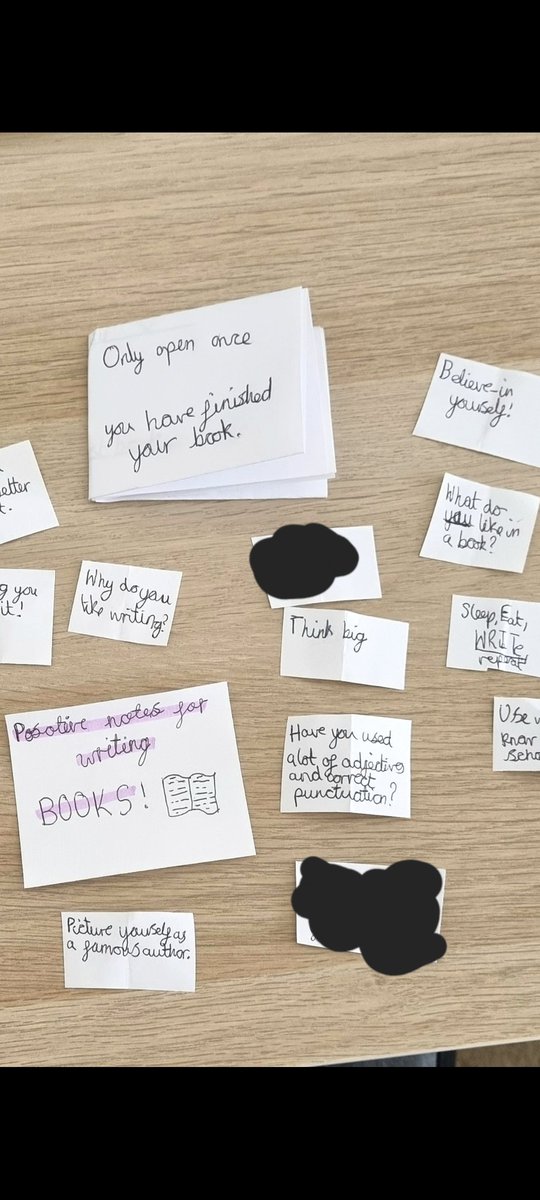 Only open once
you have finished
your book.
Believe in
yourself!
What do
you like in
a book?
Why do you
like writing?
you
it!
Think big
Sleep, Eat,
WRITE
repeat
Posotive notes for
writing
BOOKS!
Have you used
alot of adjectives
and correct
punctuation?
Use
Picture yourself as
a famous author.